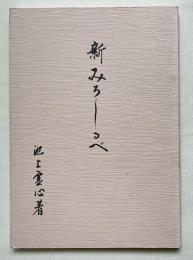 新みちしるべ
池上霊心著